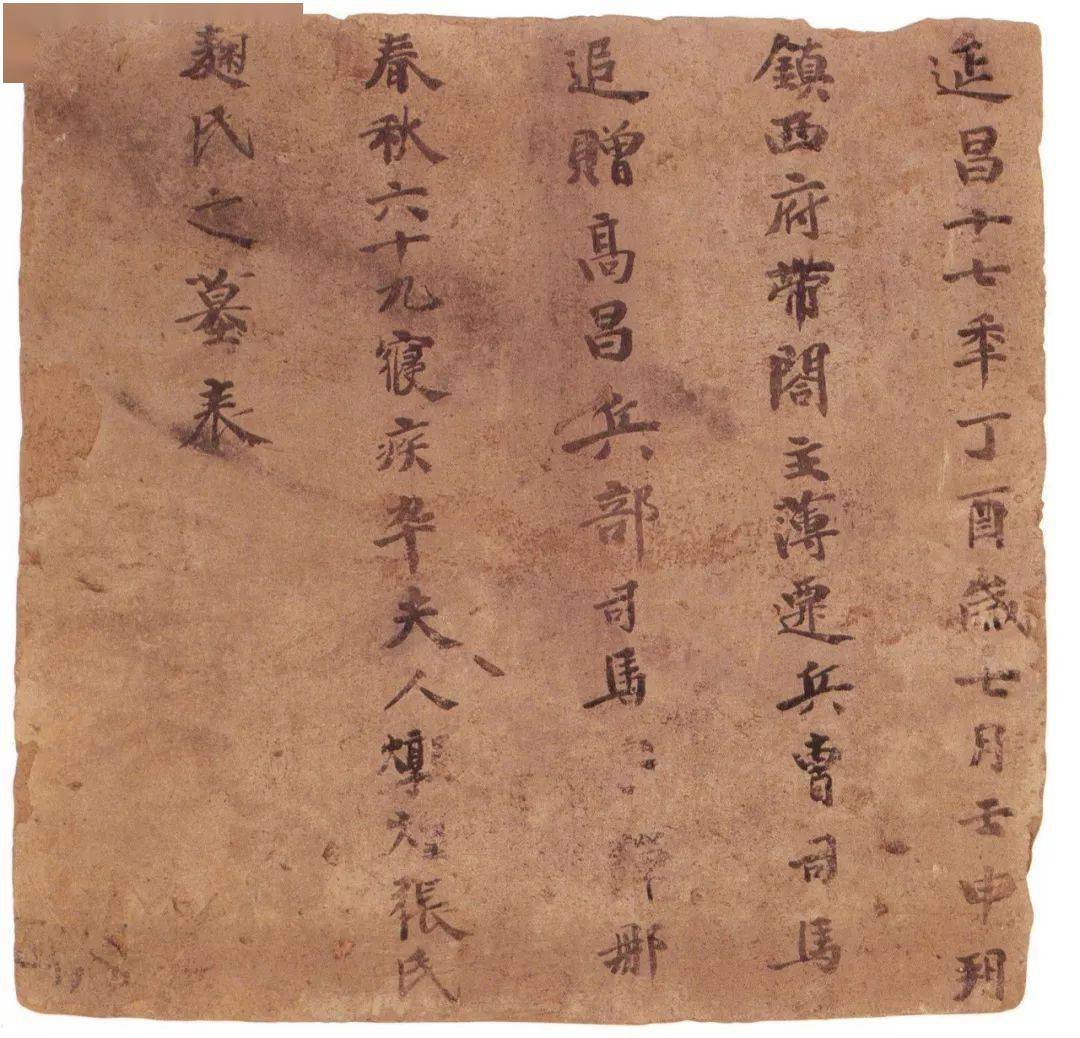 延昌十七年丁酉歲七月壬申朔
鎮西府帶閤主薄遷兵曹司馬
追贈高昌兵部司馬彈那
春秋六十九寢疾卒夫人燉煌張氏
麴氏之墓表